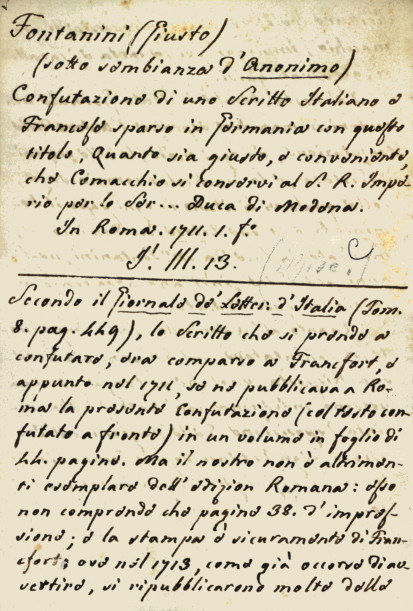 Fontanini (Giusto)
(sotto sembianza d'Anonimo)
Confutazione di uno Scritto Italiano e
Francese sparso in Germania con questo
titolo, Quanto sia giusto, e conveniente,
che Comacchio si conservi al S. R. Impe-
rio per lo Ser... Duca di Modena.
In Roma. 1711. 1. fo.
J. III. 13. (Misc.)
Secondo il Giornale de' Letter. d'Italia (Tom.
8. pag. 449), lo Scritto che si prende a
confutare, era comparso a Francfort, e
appunto nel 1711, se ne pubblicava a Ro-
ma la presente Confutazione (col testo con-
futato a fronte) in un volume in foglio di
44. pagine. Ma il nostro non è altrimen-
ti esemplare dell'edizion Romana: esso
non comprende che pagine 38. d'impres-
sione; e la stampa è sicuramente di Fran-
cfort; ove nel 1713, come già occorse di av-
vertire, si ripubblicarono molte delle